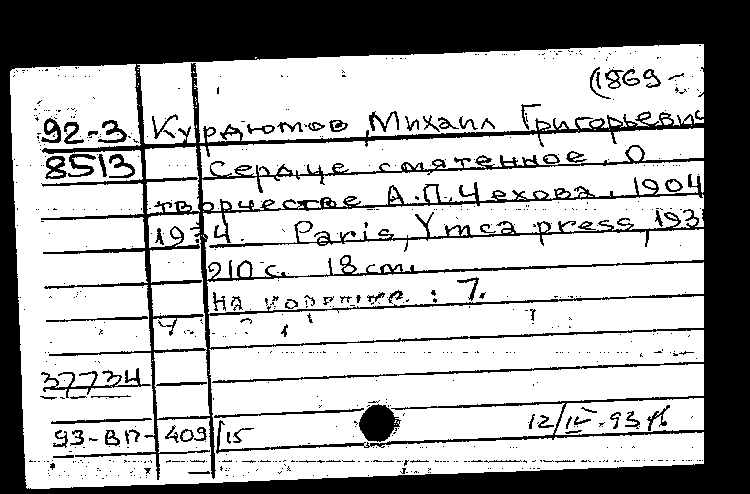 (1869 -
92-3 Курдюмов, Михаил Григорьевич
8513 Сердце смятенное. О
творчестве А.П.Чехова. 1904
1934. Paris, Ymca press, 193
210 с. 18 cm.
На корешке : 7.
37734
93-ВП-409/15 12/IV-93